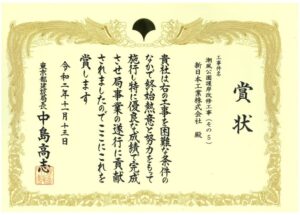 賞状
工事件名
潮風公園護岸改修工事（その５）
新日本工業株式会社 殿
貴社は右の工事を困難な条件の
なかで終始熱意と努力をもって
施行し特に優良な成績で完成
させ局事業の遂行に貢献
されましたのでここにこれを
賞します
令和二年十一月十三日
東京都建設局長 中島高志